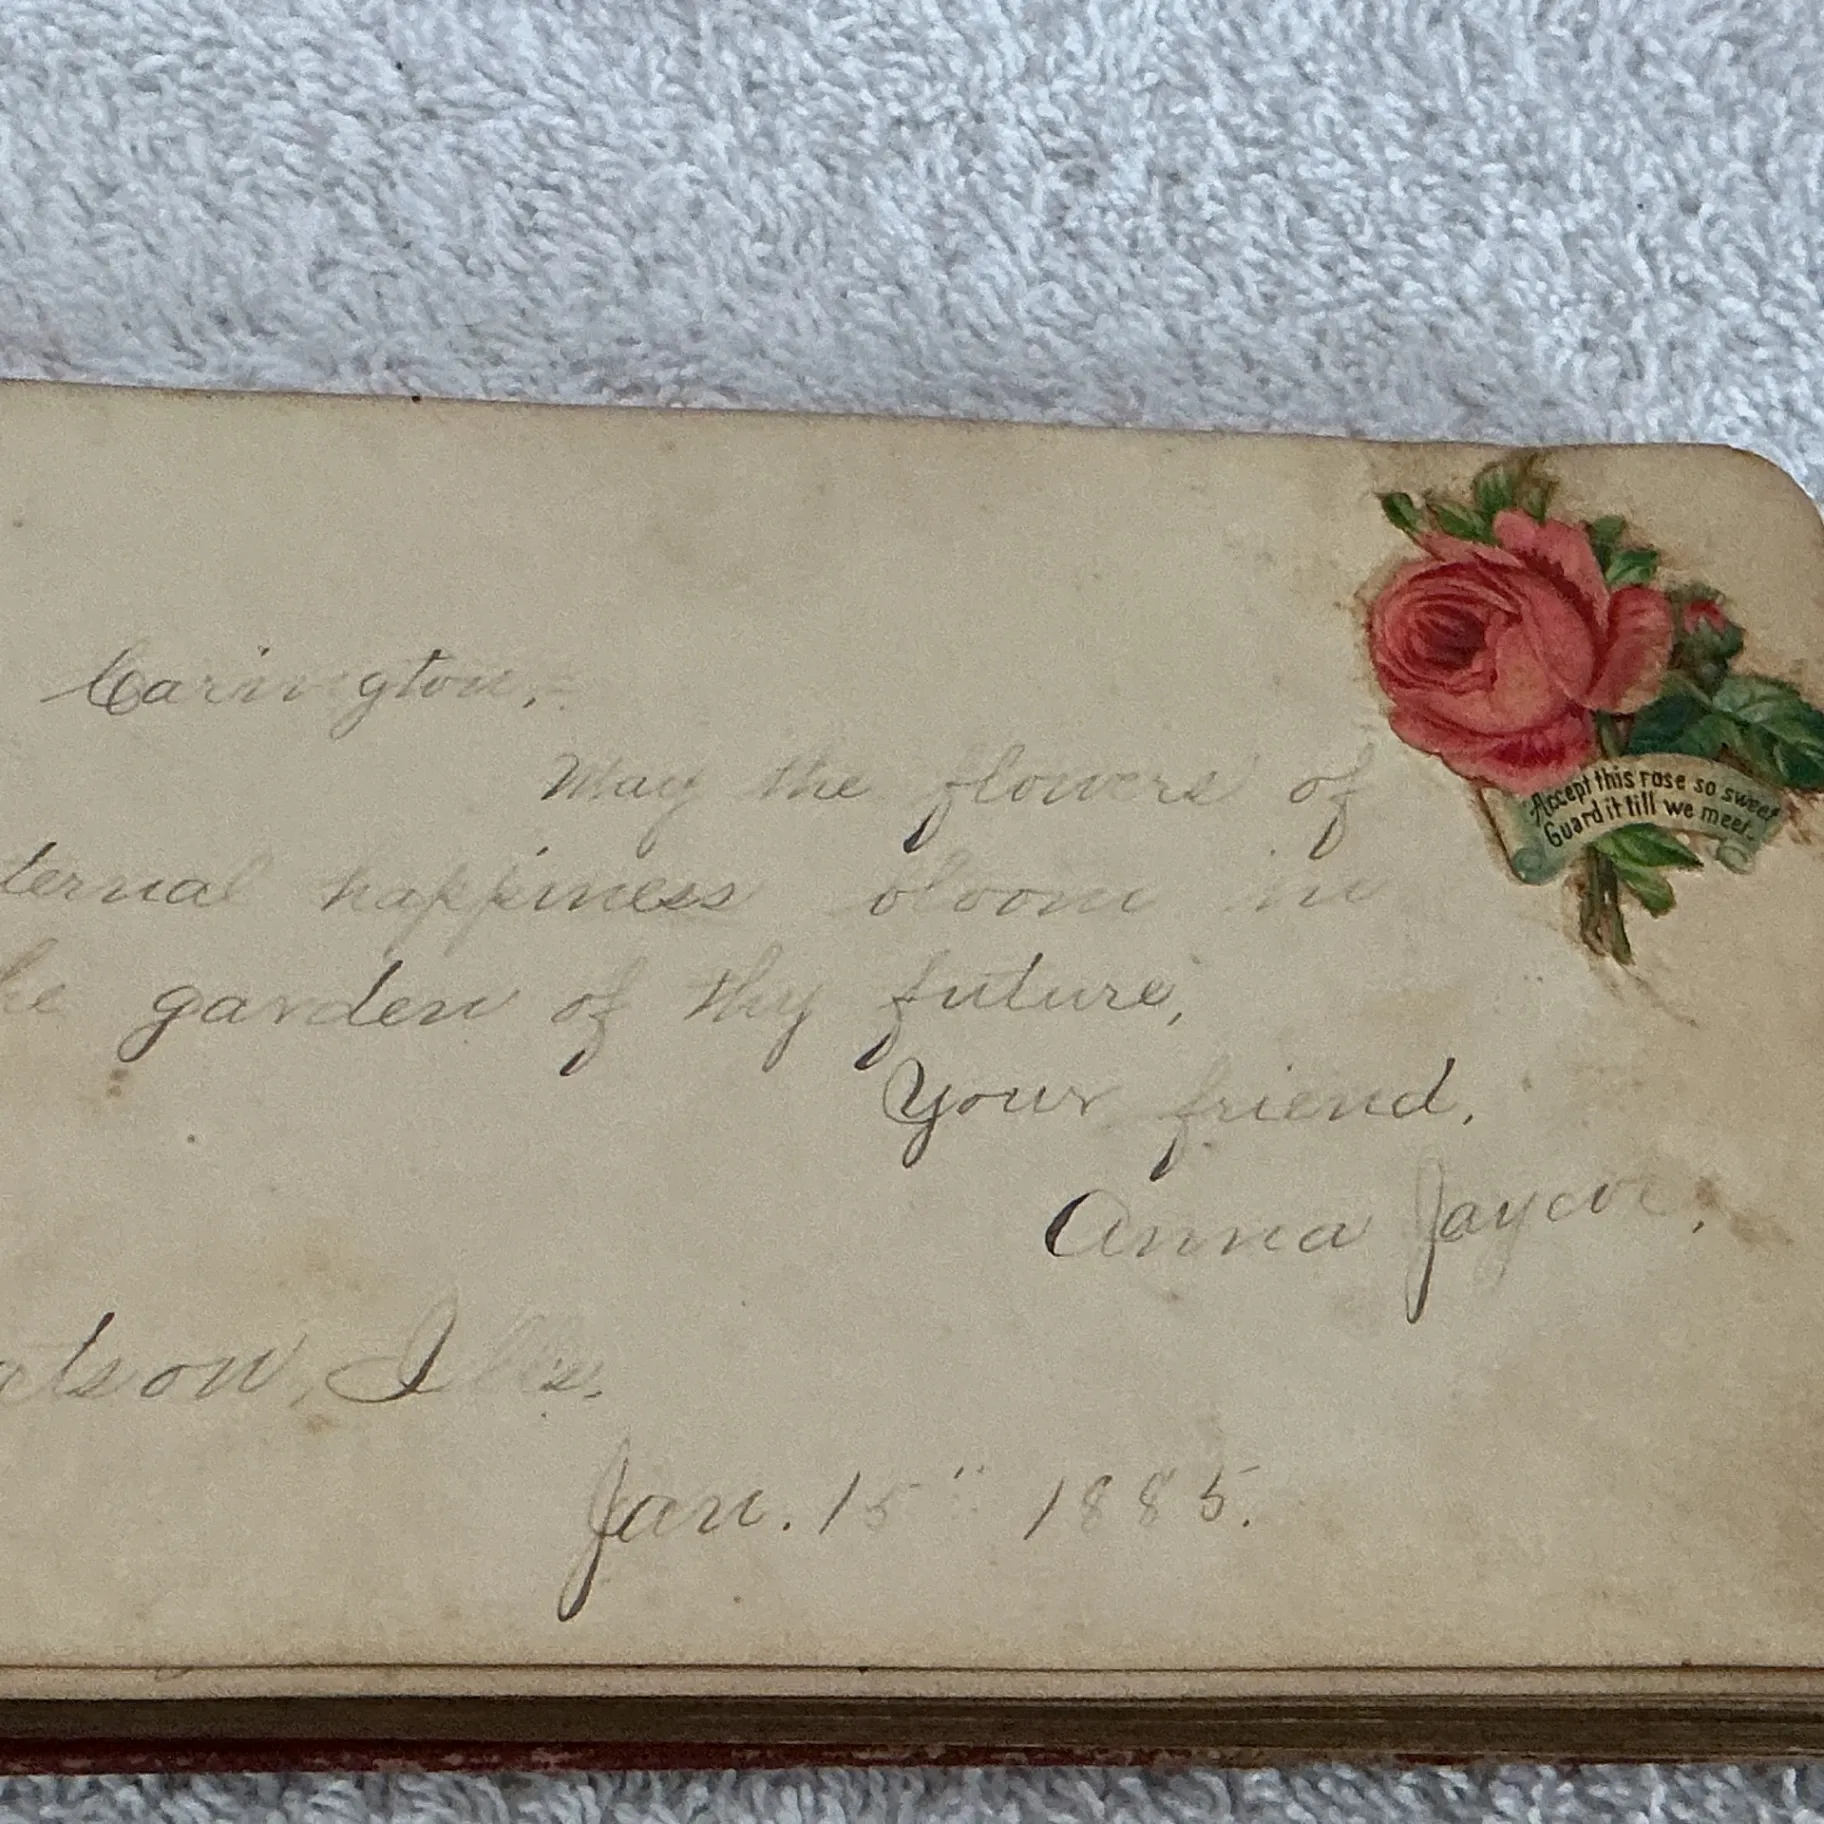 Carington,
May the flowers of
ternal happiness bloom in
he garden of thy future,
Your friend,
Anna Jaycox.
atson, Ills.
Jan. 15" 1885.
Accept this rose so sweet
Guard it till we meet.